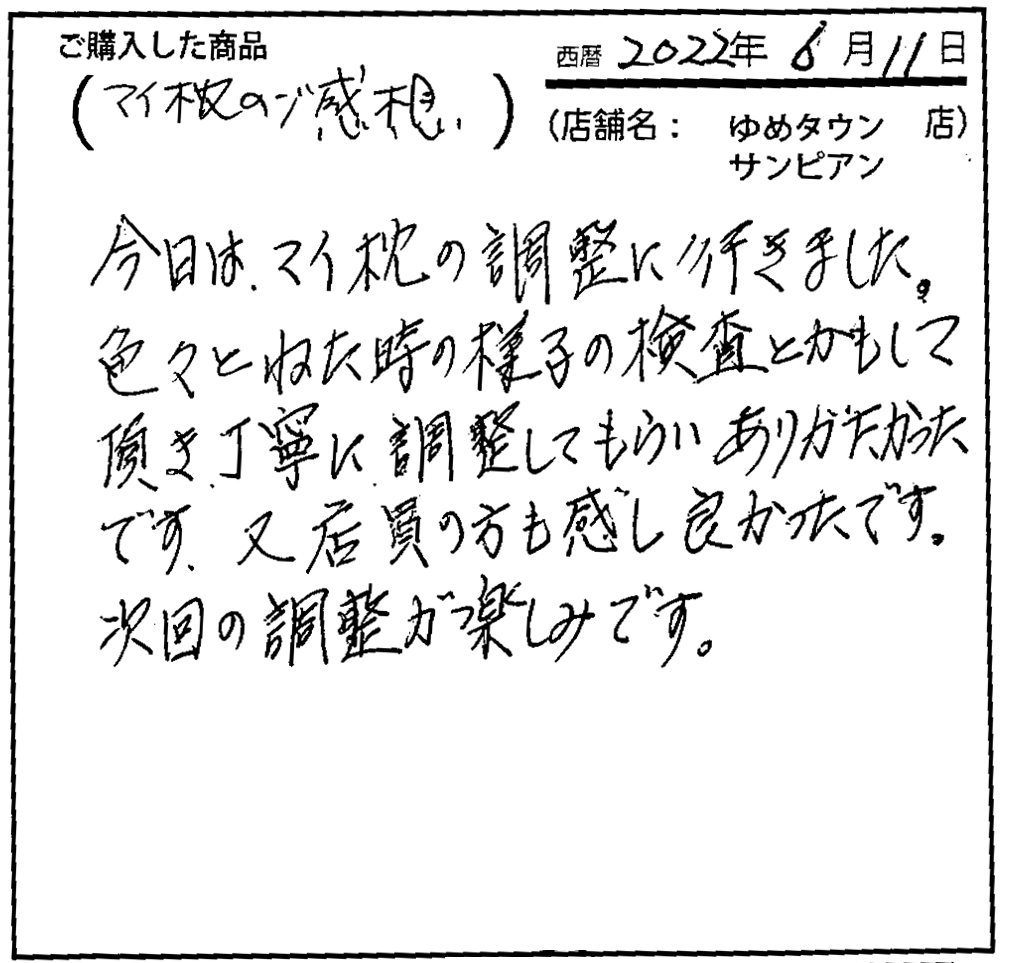 ご購入した商品
(マイ枕のご感想)
西暦 2022年 6月11日
(店舗名: ゆめタウン 店)
サンピアン
今日は、マイ枕の調整に行きました。
色々とねた時の様子の検査とかもして
頂き、丁寧に調整してもらいありがたかった
です、又店員の方も感じ良かったです。
次回の調整が楽しみです。